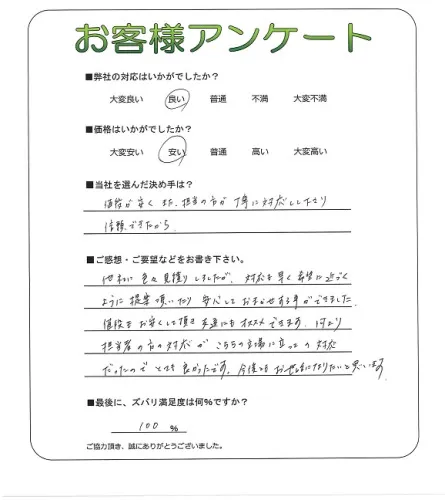 お客様アンケート
■弊社の対応はいかがでしたか?
大変良い 良い 普通 不満 大変不満
■価格はいかがでしたか?
大変安い 安い 普通 高い 大変高い
■当社を選んだ決め手は?
値段が安く また、担当の方が丁寧に対応して下さり
信頼できたから
■ご感想・ご要望などをお書き下さい。
他社に色々見積りしましたが、対応も早く希望に近づく
ように提案頂いたり 安心しておまかせする事ができました
値段もお安くして頂き 友達にもオススメできます。何より
担当者の方の対応が こちらの立場に立っての対応
だったので とても良かったです。今後ともお世話になりたいと思います。
■最後に、ズバリ満足度は何%ですか?
100 %
ご協力頂き、誠にありがとうございました。